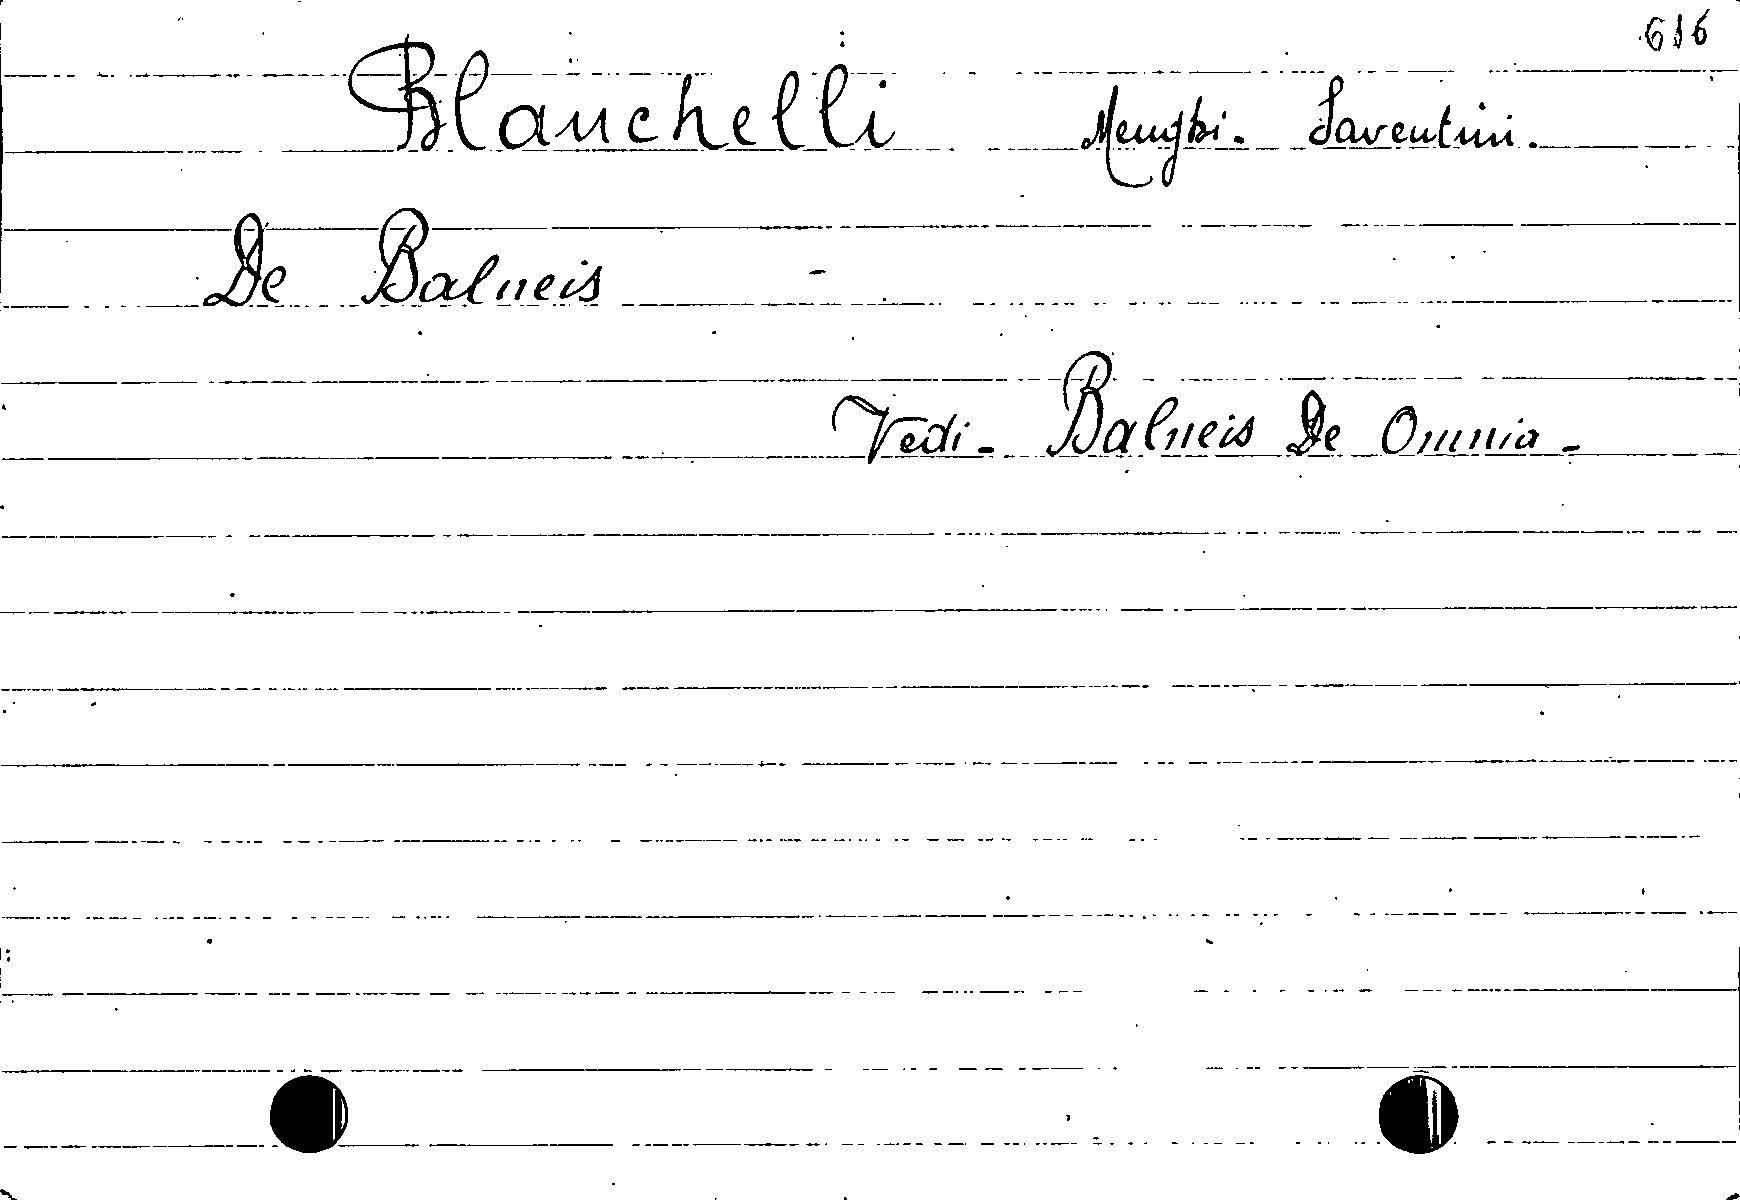 616
Blanchelli Menghi. Faventini.
De Balneis -
Vedi - Balneis De Omnia -